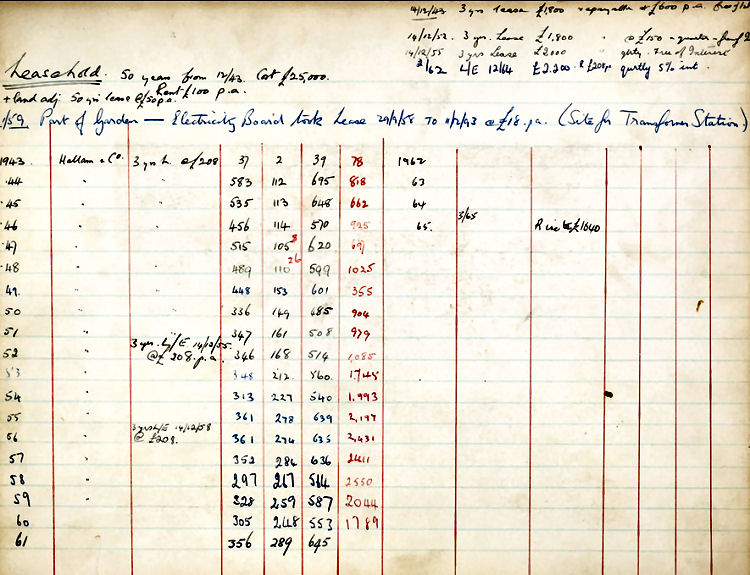 4/12/43 3 yrs lease £1800 repayable @ £600 p.a.
14/12/52. 3 yrs. Lease £1,800 " @ £150 a quarter
14/12/55 3 yrs Lease £2000 " qtly. Free of Interest
2/62 L/E 12/64 £2.200. & £208p. quartly 5% int.
Leasehold. 50 years from 12/43. Cost £25,000.
Rent £100 p.a.
+ land adj. 50 yrs lease @ £50 p.a.
1/59. Part of Garden — Electricity Board took Lease 29/9/58 TO 11/12/93 @ £18. p.a. (Site for Transformer Station)
1943. Hallam & Co. 3 yrs L. @ £208 37 2 39 78 1962
.44 " 583 112 695 818 63
.45 " 535 113 648 662 64
3/65
.46 " 456 114 570 925 65. £1640
.47 " 515 105 620 691
.48 " 489 110 599 1025
49. " 448 153 601 355
50 " 336 149 485 904
51 " 347 161 508 979
3 yrs. L/E 14/12/55
52 " @ £208. p.a. 346 168 514 1,085
53 " 348 212. 560. 1745
54 " 313 227 540 1.993
55 " 361 278 639 2,197
3 yrs L/E 14/12/58
56 " @ £208. 361 274 635 2,431
57 " 352 284 636 2411
58 " 297 267 564 2550
59 " 328 259 587 2044
60 " 305 248 553 1789
61 356 289 645